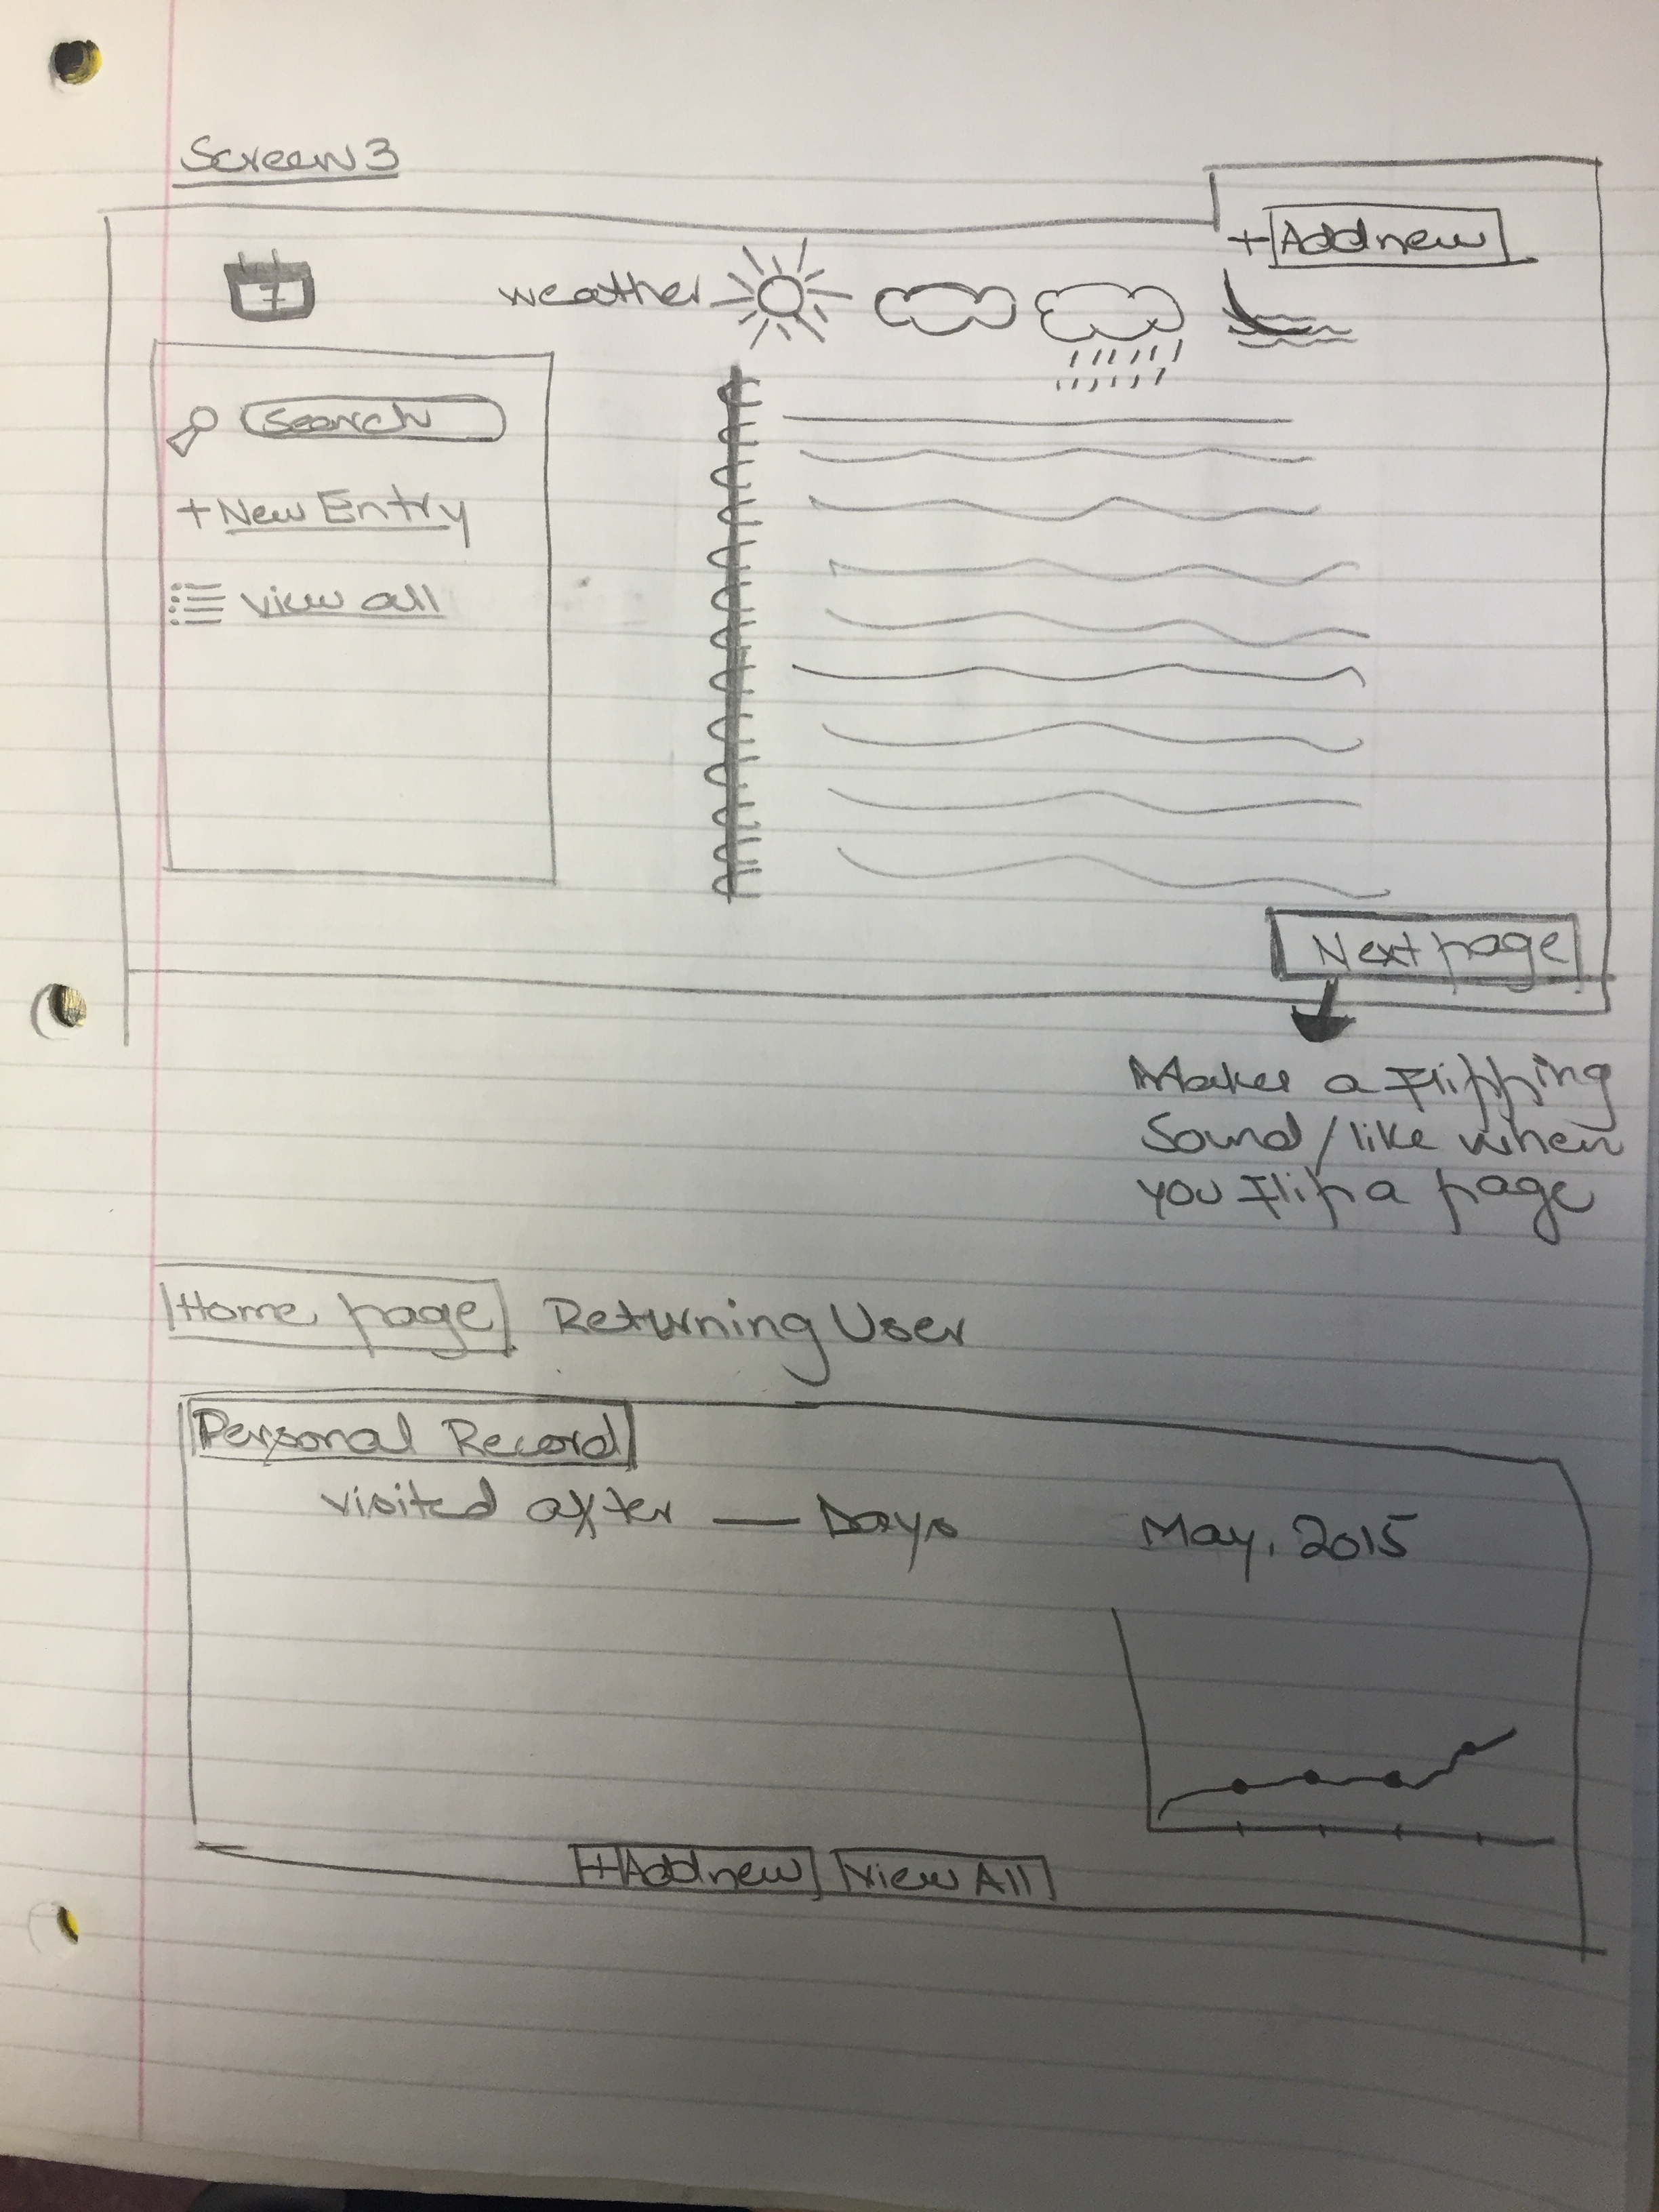 Screen 3
+ Add new
7
weather
Search
+ New Entry
view all
Next page
Makes a flipping
Sound / like when
you flip a page
Home page Returning User
Personal Record
visited after — Days
May, 2015
+ Add new View All